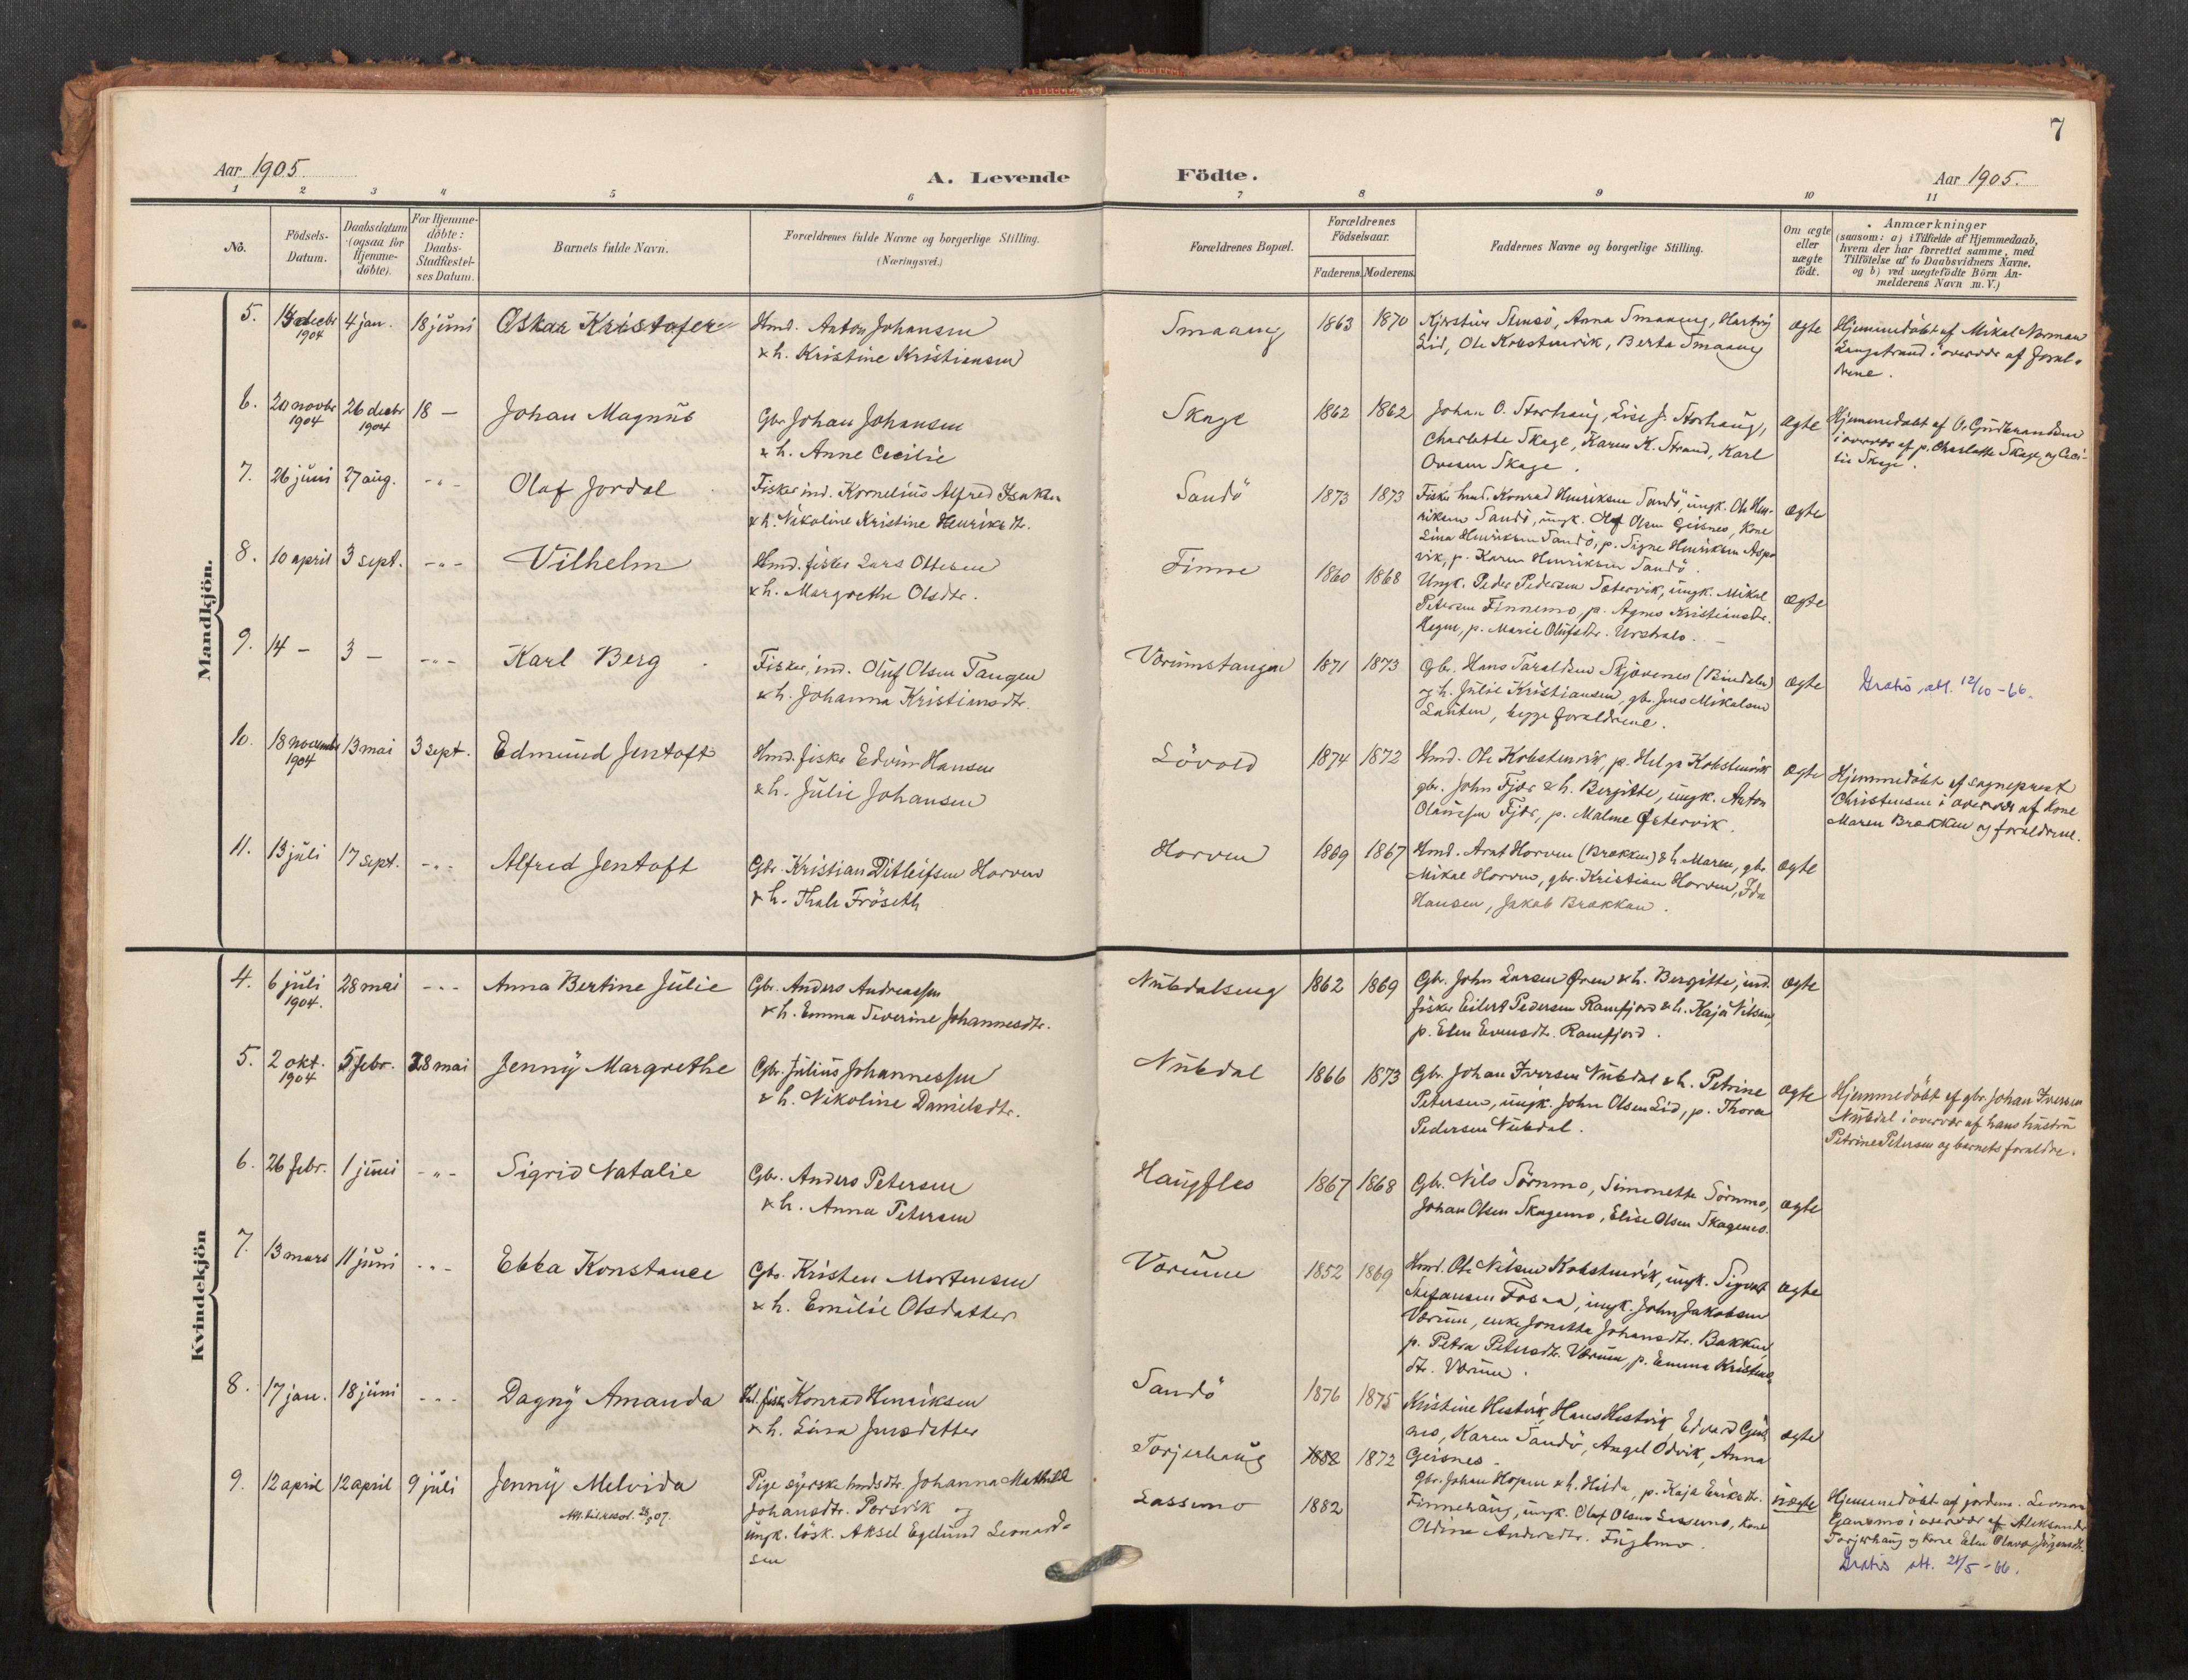 7
Aar 1905.
A. Levende Födte.
Aar 1905.
1 2 3 4 5 6 7 8 9 10 11
No.
Födsels-
Datum.
Daabsdatum
(ogsaa for
Hjemme-
döbte).
For Hjemme-
döbte:
Daabs-
Stadfæstel-
ses Datum.
Barnets fulde Navn.
Forældrenes fulde Navne og borgerlige Stilling.
(Næringsvei.)
Forældrenes Bopæl.
Forældrenes
Födselsaar.
Faderens. Moderens.
Faddernes Navne og borgerlige Stilling.
Om ægte
eller
uægte
födt.
Anmærkninger
(saasom: a) i Tilfælde af Hjemmedaab,
hvem der har forrettet samme, med
Tilföielse af to Daabsvidners Navne,
og b) ved uægtefödte Börn An-
melderens Navn m. V.)
Mandkjön.
5. decbr 1904 4 jan. 18 juni Oskar Kristofer
Hmd. Anton Johansen
& h. Kristine Kristiansen
Smaaeng 1863 1870
Anna Smaaeng,
Lid, Ole Kobstenvik, Berta Smaaeng
ægte
Hjemmedöbt af Mikal Norman
Langstrand i overvær af foræl-
drene.
6. 20 novbr 1904 26 decbr 1904 18 — Johan Magnus
Gbr. Johan Johansen
& h. Anne Cecilie
Skage 1862 1862
Johan O. Storhaug, Lise J. Storhaug,
Charlotte Skage, Karen K. Strand, Karl
Ovesen Skage.
ægte
Hjemmedöbt af O. Gudbrandsen
i overvær af p. Charlotte Skage og Ceci-
lie Skage.
7. 26 juni 27 aug. -"- Olaf Jordal
Fisker ind. Kornelius Alfred Isaksen
& h. Nikoline Kristine Henriksdt.
Sandö 1873 1873
Fisker hmd. Konrad Henriksen Sandö, ungk. Ole Hen-
riksen Sandö, ungk. Olaf Olsen Geisnes, Kone
Lina Henriksen Sandö, p. Signe Henriksen Aspe-
vik, p. Karen Henriksen Sandö.
ægte
8. 10 april 3 sept. -"- Vilhelm
Hmd. fisker Lars Ottesen
& h. Margrethe Olsdtr.
Finne 1860 1868
Ungk. Peder Pedersen Sætervik, ungk. Mikal
Petersen Finnemo, p. Agnes Kristiansdtr.
Hagen, p. Marie Olufsdtr.
ægte
9. 14 — 3 — -"- Karl Berg
Fisker, ind. Oluf Olsen Tangen
& h. Johanna Kristiansdtr.
Værumstangen 1871 1873
Gbr. Hans Taraldsen Skjævenes (Bindalen)
og h. Julie Kristiansen, gbr. Jens Mikalsen
Lauten, begge forældrene.
ægte
Gratis att. 12/10-66.
10. 18 novembr 1904 13 mai 3 sept. Edmund Jentoft
Hmd. fisker Edvin Hansen
& h. Julie Johansen
Lövold 1874 1872
Hmd. Ole Kobstenvik, p. Helga Kobstenvik
gbr. John Fjær & h. Bergitte, ungk. Anton
Olaussen Fjær, p. Malene Østervik.
ægte
Hjemmedöbt af sogneprest
Christensen i overvær af Kone
Maren Brækken og forældrene.
11. 13 juli 17 sept. -"- Alfred Jentoft
Gbr. Kristian Ditlefsen Horven
& h. Thale Fröseth
Horven 1869 1867
Hmd. Arnt Horven (Brækken) & h. Maren, gbr.
Mikal Horven, gbr. Kristian Horven, Ida
Hansen, Jakob Brækkan.
ægte
Kvindekjön
4. 6 juli 1904. 28 mai -"- Anna Bertine Julie
Gbr. Anders Andreassen
& h. Emma Severine Johannesdtr.
Nubdalseng 1862 1869
Gbr. John Larsen Ören & h. Bergitte, ind.
fisker Eilert Pedersen Ramfjord & h. Kaja Nilsen,
p. Elen Evensdt. Ramfjord.
ægte
5. 2 okt. 1904 5 febr. 28 mai Jenny Margrethe
Gbr. Julius Johannessen
& h. Nikoline Danielsdtr.
Nubdal 1866 1873
Gbr. Johan Iversen Nubdal & h. Petrine
Petersen, ungk. John Olsen Lid, p. Thora
Pedersen Nubdal.
ægte
Hjemmedöbt af gbr. Johan Iversen
Nubdal i overvær af hans hustru
Petrine Petersen og barnets forældre.
6. 26 febr. 1 juni -"- Sigrid Natalie
Gbr. Anders Petersen
& h. Anna Petersen
Haugfles 1867 1868
Gbr. Nils Sörnmo, Simonette Sörnmo,
Johan Olsen Skagemo, Elise Olsen Skagemo.
ægte
7. 13 mars 11 juni -"- Ebba Konstance
Gbr. Kristen Mortensen
& h. Emilie Olsdatter
Værum 1852 1869
Hmd. Ole Nilsen Kobstenvik, ungk. Sigvart
Stefansen Fosaa, ungk. John Jakobsen
Værum, enke Jonetta Johansdtr. Bakken,
p. Petra Petersdt. Værum, p. Emma Kristens-
dtr. Værum.
ægte
8. 17 jan. 18 juni -"- Dagny Amanda
Hmd. fisker Konrad Henriksen
& h. Lina Jensdatter
Sandö 1876 1875
Kristine Hestvik, Hans Hestvik, Edvard Geis-
nes, Karen Sandö, Angel Odvik, Anna
Geisnes.
ægte
9. 12 april 12 april 9 juli Jenny Melvida
Att. bil. resol. 07.
Pige syerske hmdsdtr. Johanna Mathilde
Johansdtr. Porsvik og
ungk. lösk. Aksel Egelund Leonard-
sen
Torjerhaug 1882 1872
Lassemo 1882
Gbr. Johan Hopen & h. Hilda, p. Kaja Eriksdt.
Finnehaug, ungk. Olaf Olsen Lassemo, kone
Oldine Andersdtr. Fuglmo.
uægte
Hjemmedöbt af jordm. Leonora
Gansmo i overvær af Aleksander
Torjerhaug og Kone Elen Olava Jörgensdt.
Gratis att. 21/5-66.